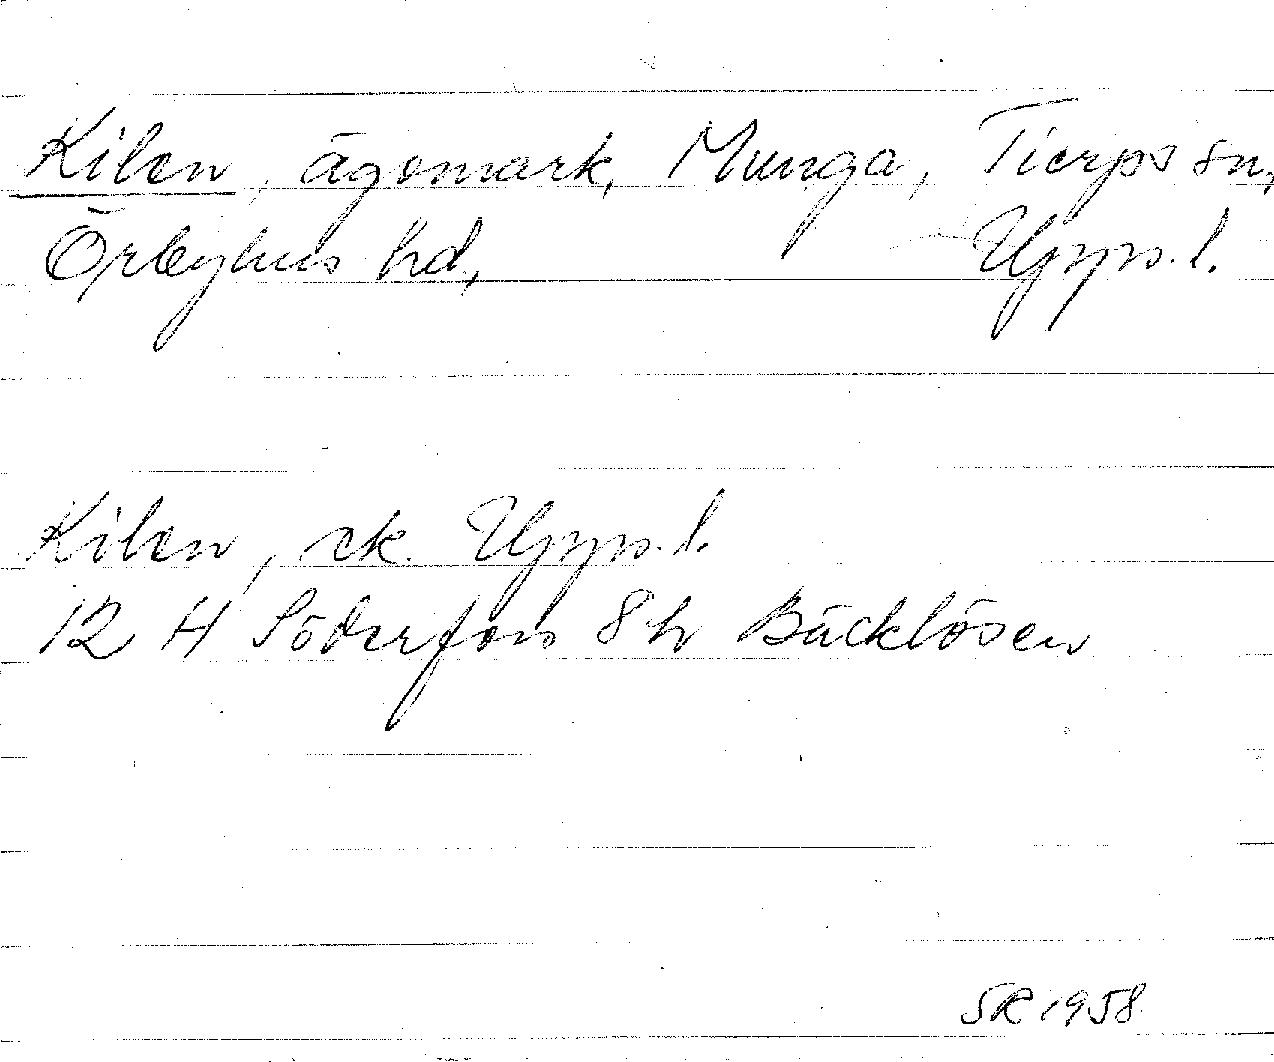 Kilen, ägomark, Munga, Tierps sn,
Örbyhus hd, Upps. l.
Kilen, ek. Upps. l.
12 H Söderfors 8h Bäcklösen
SR 1958